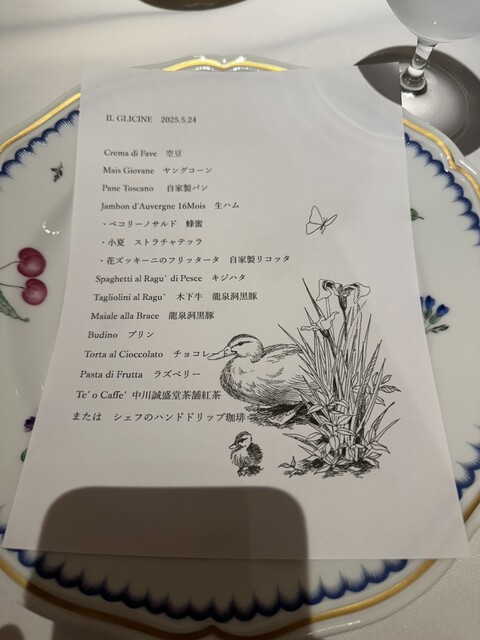 IL GLICINE 2025.5.24
Crema di Fave 空豆
Mais Giovane ヤングコーン
Pane Toscano 自家製パン
Jambon d'Auvergne 16Mois 生ハム
・ペコリーノサルド 蜂蜜
・小夏 ストラチャテッラ
・花ズッキーニのフリッタータ 自家製リコッタ
Spaghetti al Ragu' di Pesce キジハタ
Tagliolini al Ragu' 木下牛 龍泉洞黒豚
Maiale alla Brace 龍泉洞黒豚
Budino プリン
Torta al Cioccolato チョコレ
Pasta di Frutta ラズベリー
Te' o Caffe' 中川誠盛堂茶舗紅茶
または シェフのハンドドリップ珈琲